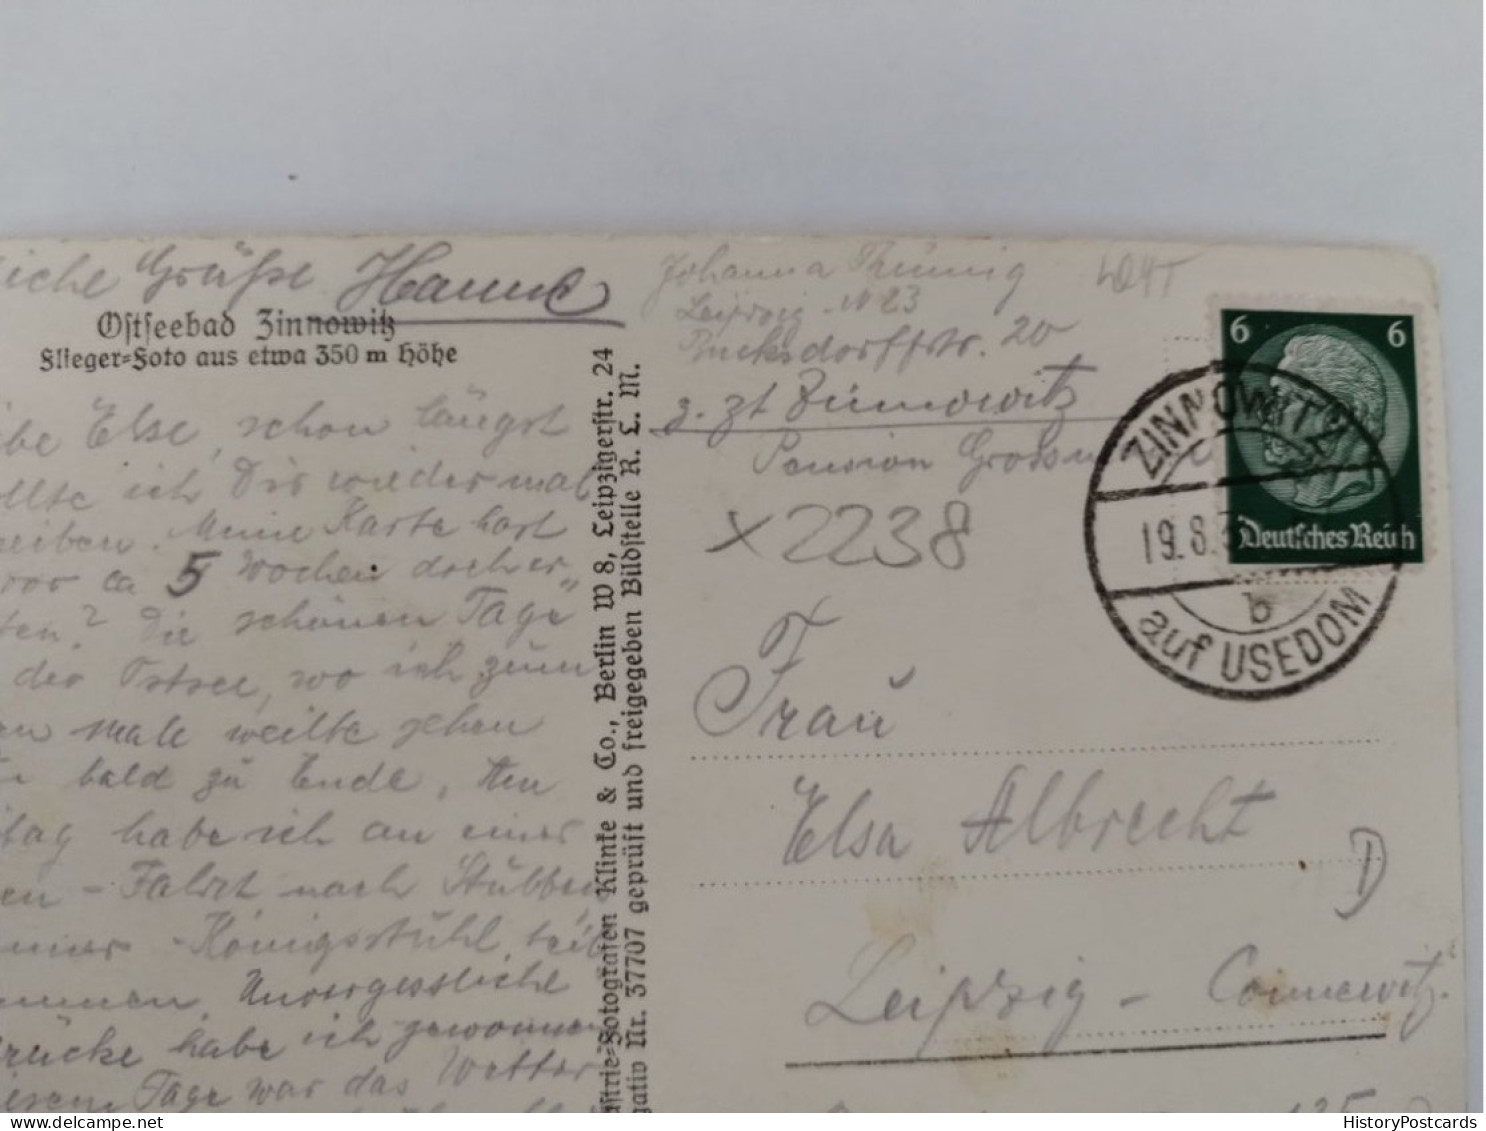 iche Grüße Hanne
Ostseebad Zinnowitz
Flieger=Foto aus etwa 350 m Höhe
be Else, schon längst
llte ich Dir wieder mal
eiben. Meine Karte hast
vor ca 5 Wochen doch er-
ten? Die schönen Tage
der Ostsee, wo ich zum
en male weilte gehen
bald zu Ende. Am
tag habe ich an einer
en - Fahrt nach Stubben
mer - Königsstuhl teil
ommen. Unvergessliche
rücke habe ich gewonnen
Tage war das Wetter
ustrie=Fotografen Klinke & Co., Berlin W 8, Leipzigerstr. 24
gativ Nr. 37707 geprüft und freigegeben Bildstelle R. L. M.
Johanna Thünnig
Leipzig N 23
Bucksdorffstr. 20
z. Zt Zinnowitz
Pension
x 2238
Frau
Elsa Albrecht
Leipzig - Connewitz.
135
D
6 6
Deutsches Reich
ZINNOWITZ
19.8.
b
auf USEDOM
HistoryPostcards